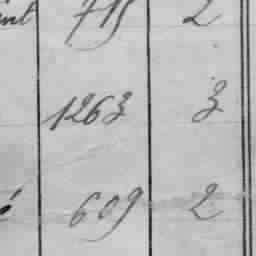 715 2
1263 3
609 2